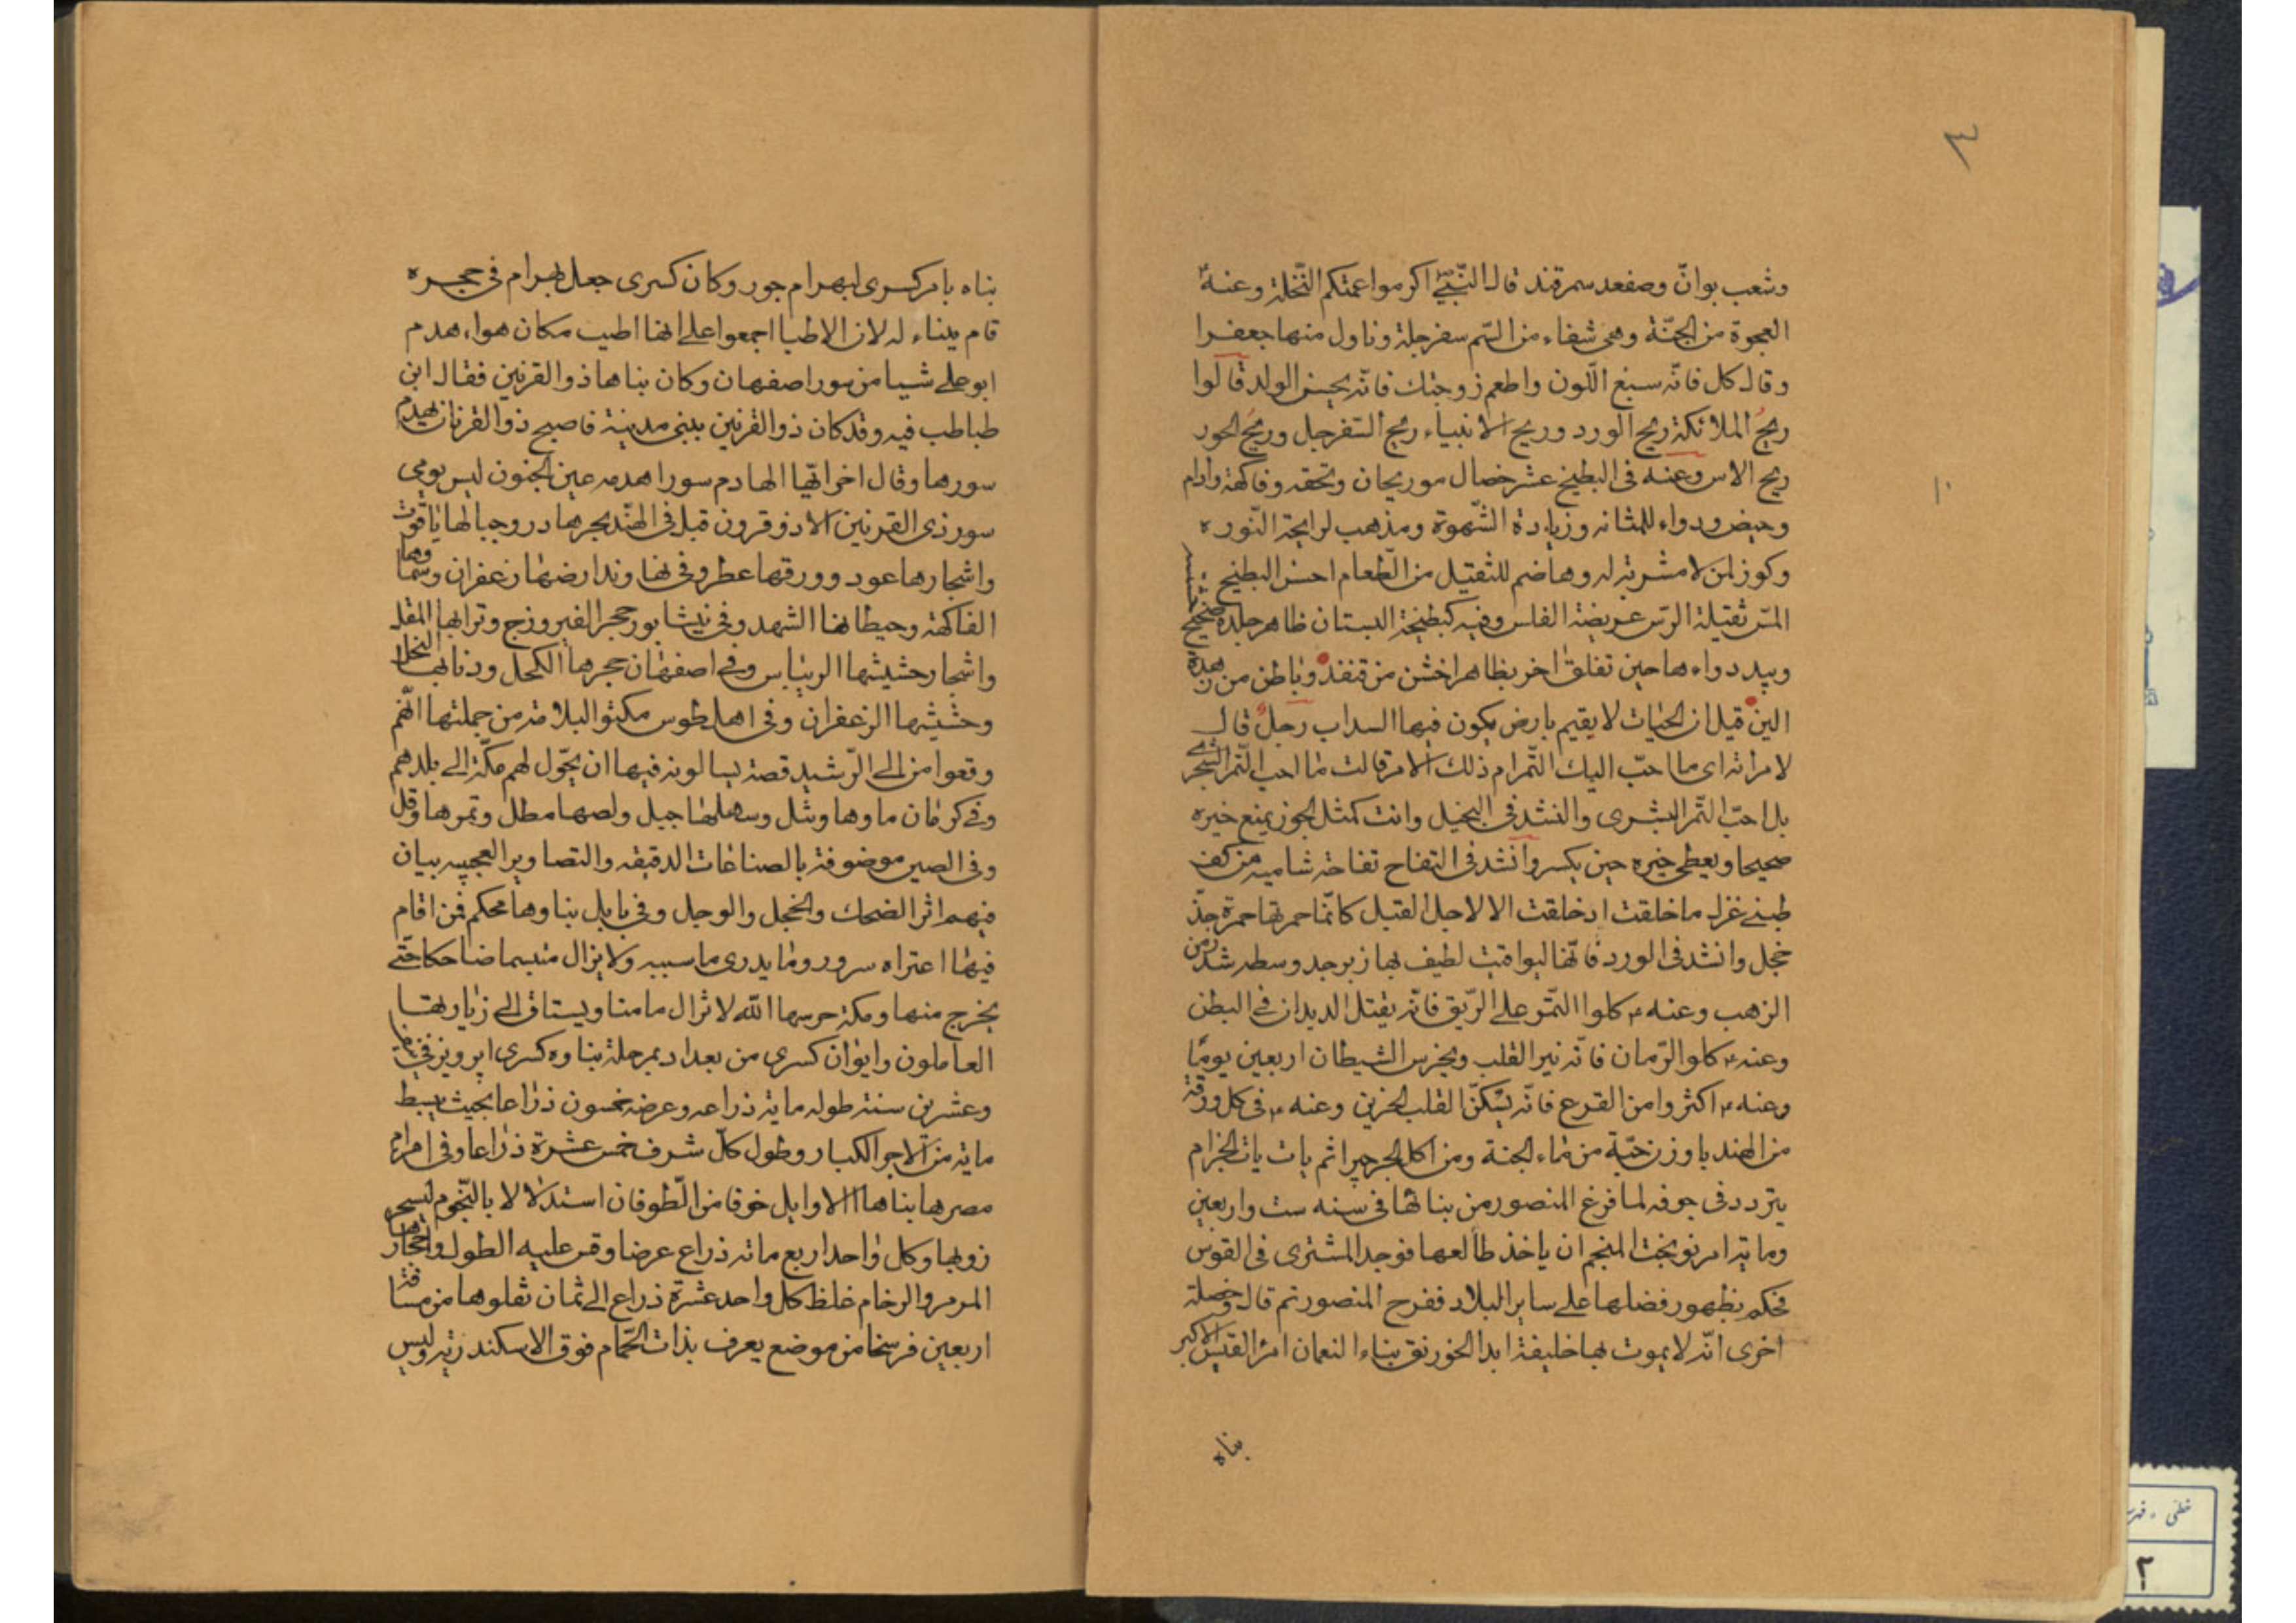 ٣
وشعب بوانّ وصفعد سمرقند قال النّبيّ اكرموا عمتكم النّخلة وعنه
العجوة من الجنّة وهى شفاء من السّم سفرجلة وناول منها جعفرا
وقال كل فانّه سبغ اللّون واطعم زوجتك فانّه يحسن الولد قالوا
ريحُ الملائكة ريح الورد وريح الانبياء ريح السّفرجل وريحُ الحور
ريح الاس وعنه فى البطيخ عشر خصال هو ريحان وتحفه وفاكهة وادام
وحبيض ودواء للمثانه وزيادة الشّهوة ومذهب لرايحة النّوره
وكوز لمن لا مشربة له وهاضم للثقيل من الطّعام احسن البطيخ
المسّ ثقيلة الرّس عريضة الفلس وفيه كبطيخة البستان ظاهر جلده صحيح
ويبدد واءها حين تفلق اخر بظاهر اخشن من قنفذ وباطن من زبده
الين قيل ان الحيات لا يقيم بارض يكون فيها السداب رجل قال
لامراته اى ما احبّ اليك التّمر ام ذلك الامر قالت ما احب التّمر الشجر
بل احبّ التّمر البشرى وانشد فى البخيل وانت كمثل الجوز يمنع خيره
صحيحا ويعطى خيره حين يكسر وانشد فى التفاح تفاحة شاميه من كف
ظبنے غزل ما خلقت اذ خلقت الا لاجل القبل كانّما حمرتها حمرة خدّ
خجل وانشد فى الورد فانّها اليواقيت لطيف بها زبرجد وسطه شذر من
الذهب وعنه ع كلوا التّمر على الرّيق فانّه يقتل الديدان فے البطن
وعنه ع كلوا الرّمان فانّه نير القلب ويخرس الشيطان اربعين يومًا
وعنه ع اكثروا من القرع فانّه يسكنّ القلب الحزين وعنه ع فى كل ورقة
من الهندبا وزن حبّة من ماء الجنة ومن اكل الجرجير ثم بات بات الجزام
يتردد فى جوفه لما فرغ المنصور من بنائها فى سنه ست واربعين
ومايه امر نوبخت المنجم ان ياخذ طالعها فوجد المشترى فى القوس
فحكم بظهور فضلها على ساير البلاد ففرح المنصور ثم قال وخصلة
اخرى انّه لا يموت بها خليفة ابدا الخورنق بناء النعمان امرا القيس الاكبر
بناه
بناه بامر كسرى لبهرام جور وكان كسرى جعل بهرام فى حجره
قام ببناء له لان الاطبا اجمعوا على انها اطيب مكان هواء هدم
ابو على شيا من سور اصفهان وكان بناها ذو القرنين فقال ابن
طباطب فيه وقد كان ذو القرنين يبنى مدينة فاصبح ذو القرنان يهدم
سورها وقال اخر ايّها الهادم سورا هدمه عين الجنون ليس يومى
سور ذى القرنين الا ذو قرون قيل فى الهند بحرها در وجبالها ياقوت
واشجارها عود وورقها عطر وفى نهاوند ارضها زعفران وسماوها
الفاكهة وحيطانها الشهد وفى نيشابور حجر الفيروزج وترابها المقل
واشجار حشيشها الريباس وفے اصفهان حجرها الكحل وذبابها النحل
وحشيشها الزعفران وفى اهل طوس مكبتو البلامة من جملتها انّهم
وقعوا من الے الرّشيد قصة يسالونه فيها ان يحّول لهم مكّة الے بلدهم
وفے كرمان ماوها وشل وسهلها جبل ولصها مطل وتمرها وقل
وفى الصين موضوفة بالصناعات الدقيقه والتصاوير العجيبه بيان
فيهم اثر الضحك والخجل والوجل وفى بابل بناوها محكم فمن اقام
فيها اعتراه سرور وما يدرى ما سببه ولا يزال متبسما ضاحكا حتّے
يخرج منها ومكة حرسها الله لا تزال مامنا ويستاق الے زيارتها
العاملون وايوان كسرى من بغداد بمرحلة بناوه كسرى ابرويز فى نيف
وعشرين سنة طوله مايه ذراعه وعرضه خمسون ذراعا بحيث يبسط
مايه من الاجر الكبار وطول كلّ شرف خمس عشرة ذراعا وفى اهرام
مصرها بناها الاوايل خوفا من الطّوفان استدلالا بالنّجوم
زوبها وكل واحد اربع مائه ذراع عرضا وقر عليه الطول واحجارها
المرمر والرخام غلظ كل واحد عشرة ذراع الے ثمان نقلوها من مسافة
اربعين فرسخا من موضع يعرف بذات الحّمام فوق الاسكندريّه وليس
١٠
خطى ، فهرس
٢